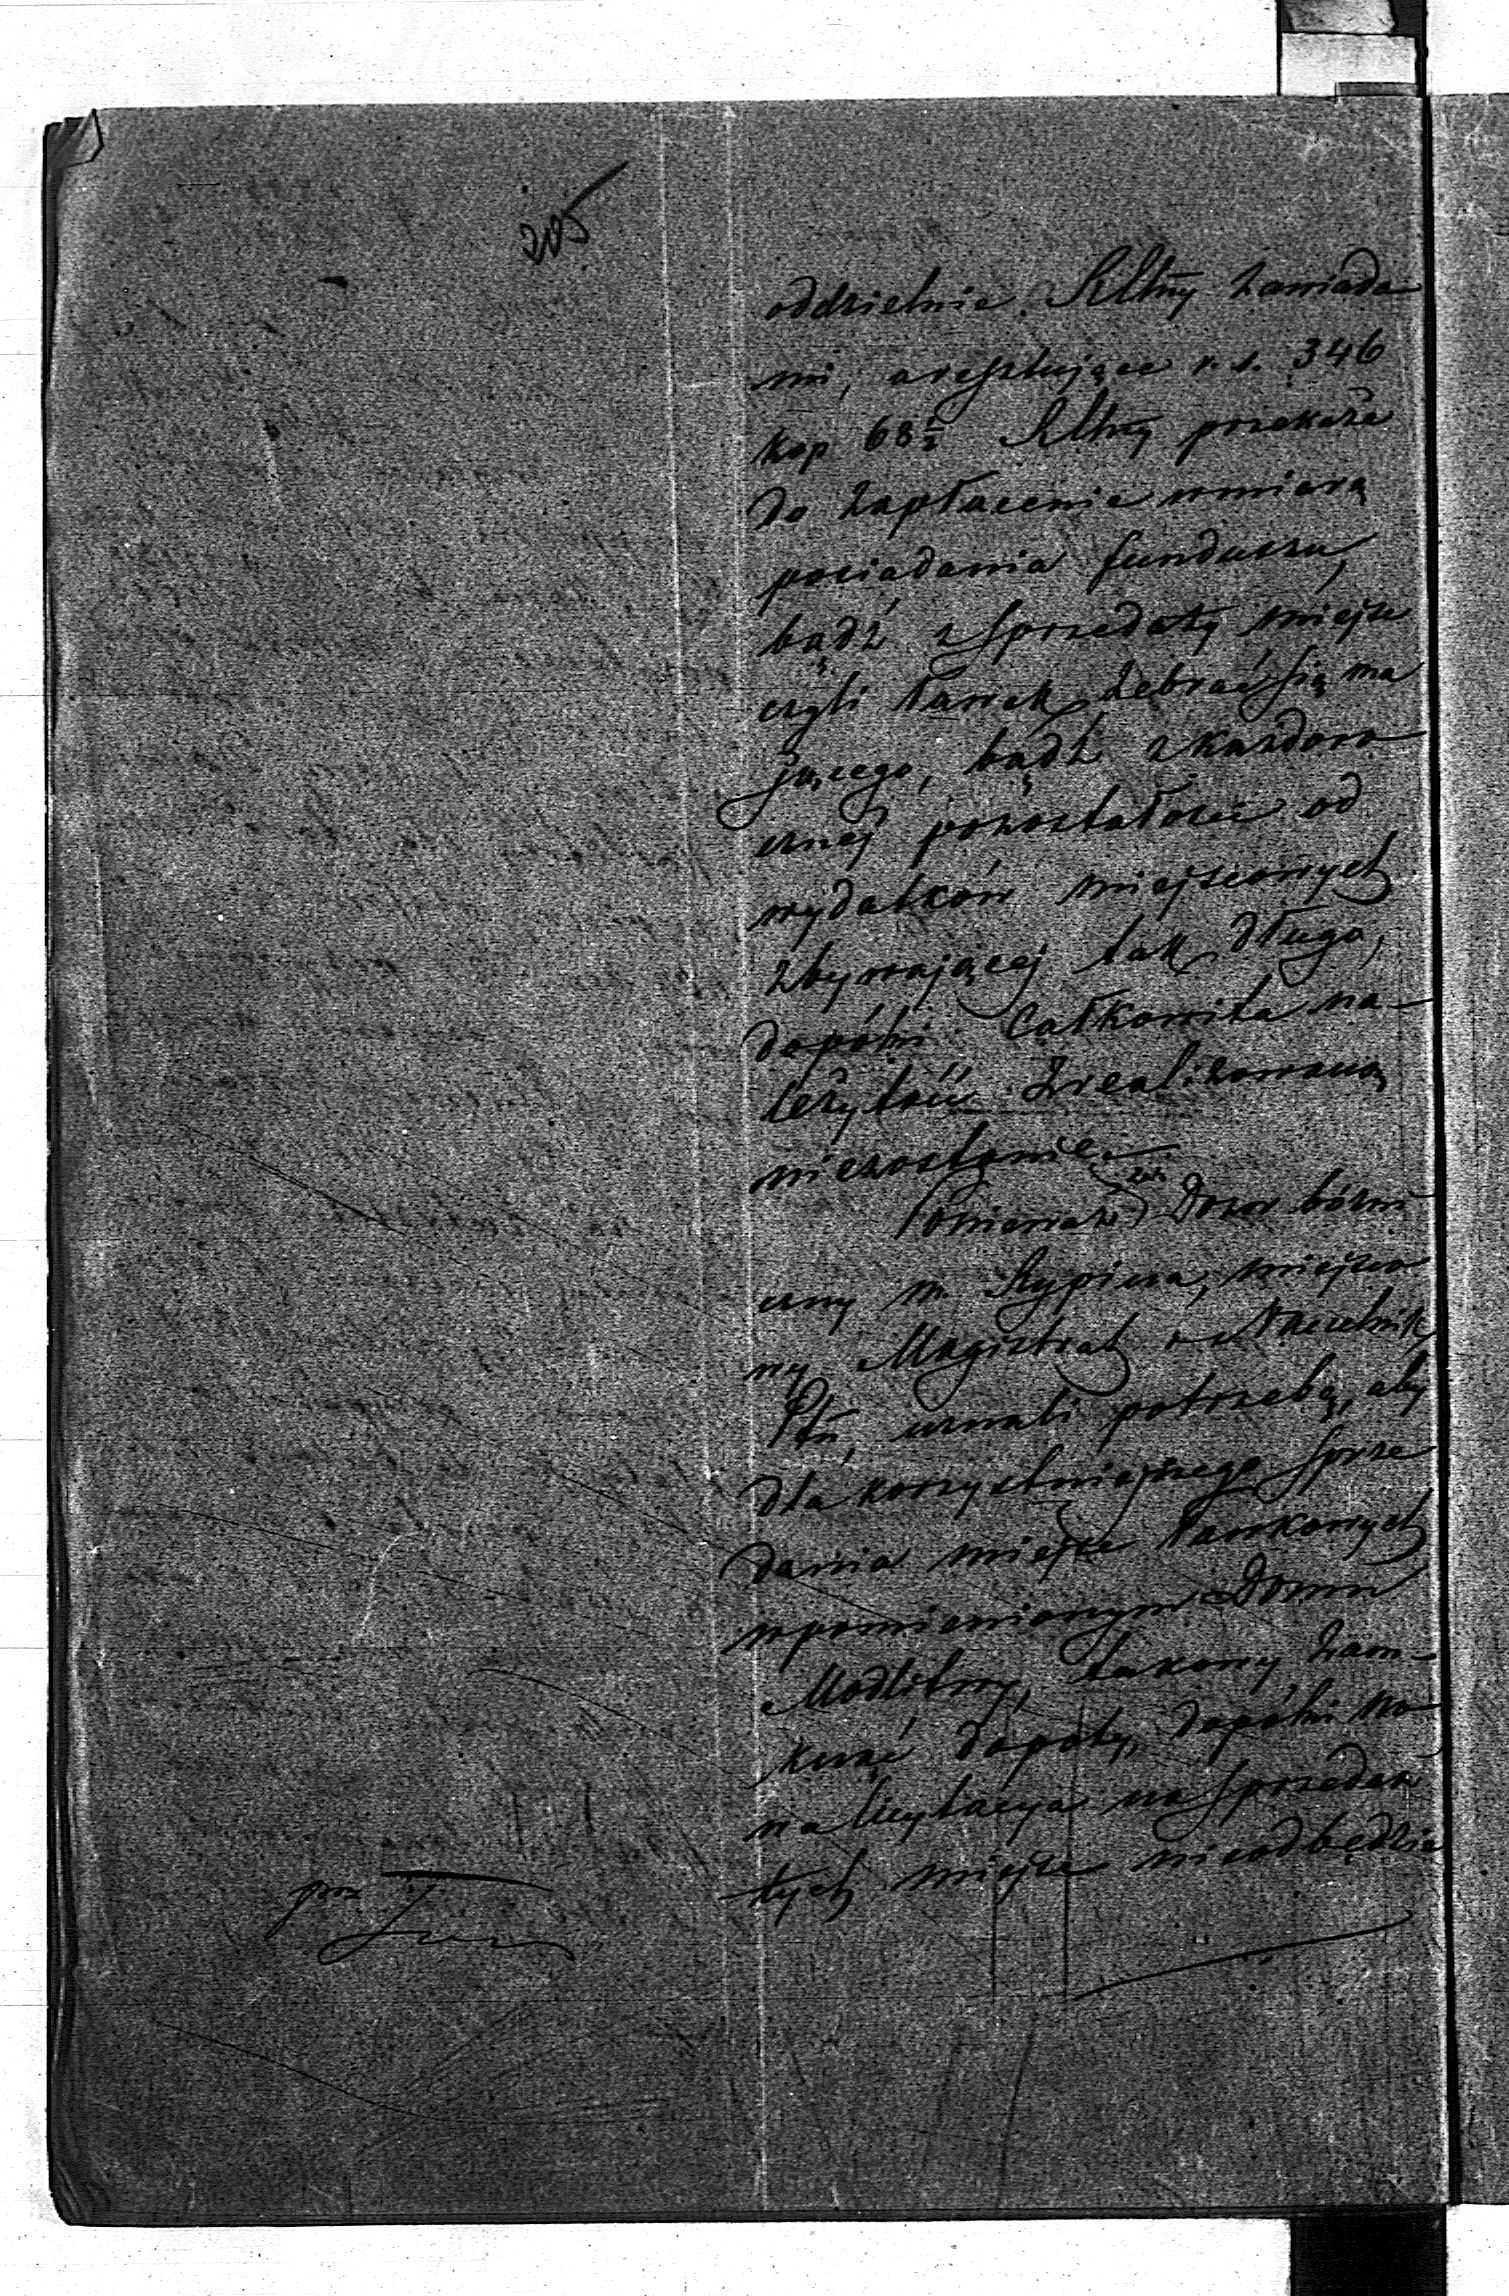 oddzielnie Rltny zawiada
mi, a resztujące r. s. 346
kop 68½ Rltny przekaże
do zapłacenia wmiarę
posiadania funduszu,
bądź z sprzedaży miejsc
czyli ławek zebrać się ma
jącego, bądź z każdoro
cznej pozostałości od
wydatków miejscowych
zbywającej tak długo,
dopóki całkowita na-
leżytość zrealizowaną
niezostanie.
Ponieważ zaś Dozor bóżni
czny m. Rypina, miejsco
wy Magistrat i Naczelnik
Ptu, uznali potrzebę, aby
dla korzystniejszego sprze
dania miejsc ławkowych
wpomienionym Domu
Modlitwy, takowy zam-
knąć dopóty, dopóki
na licytacya na sprzedaż
tych miejsc nieodbędzie